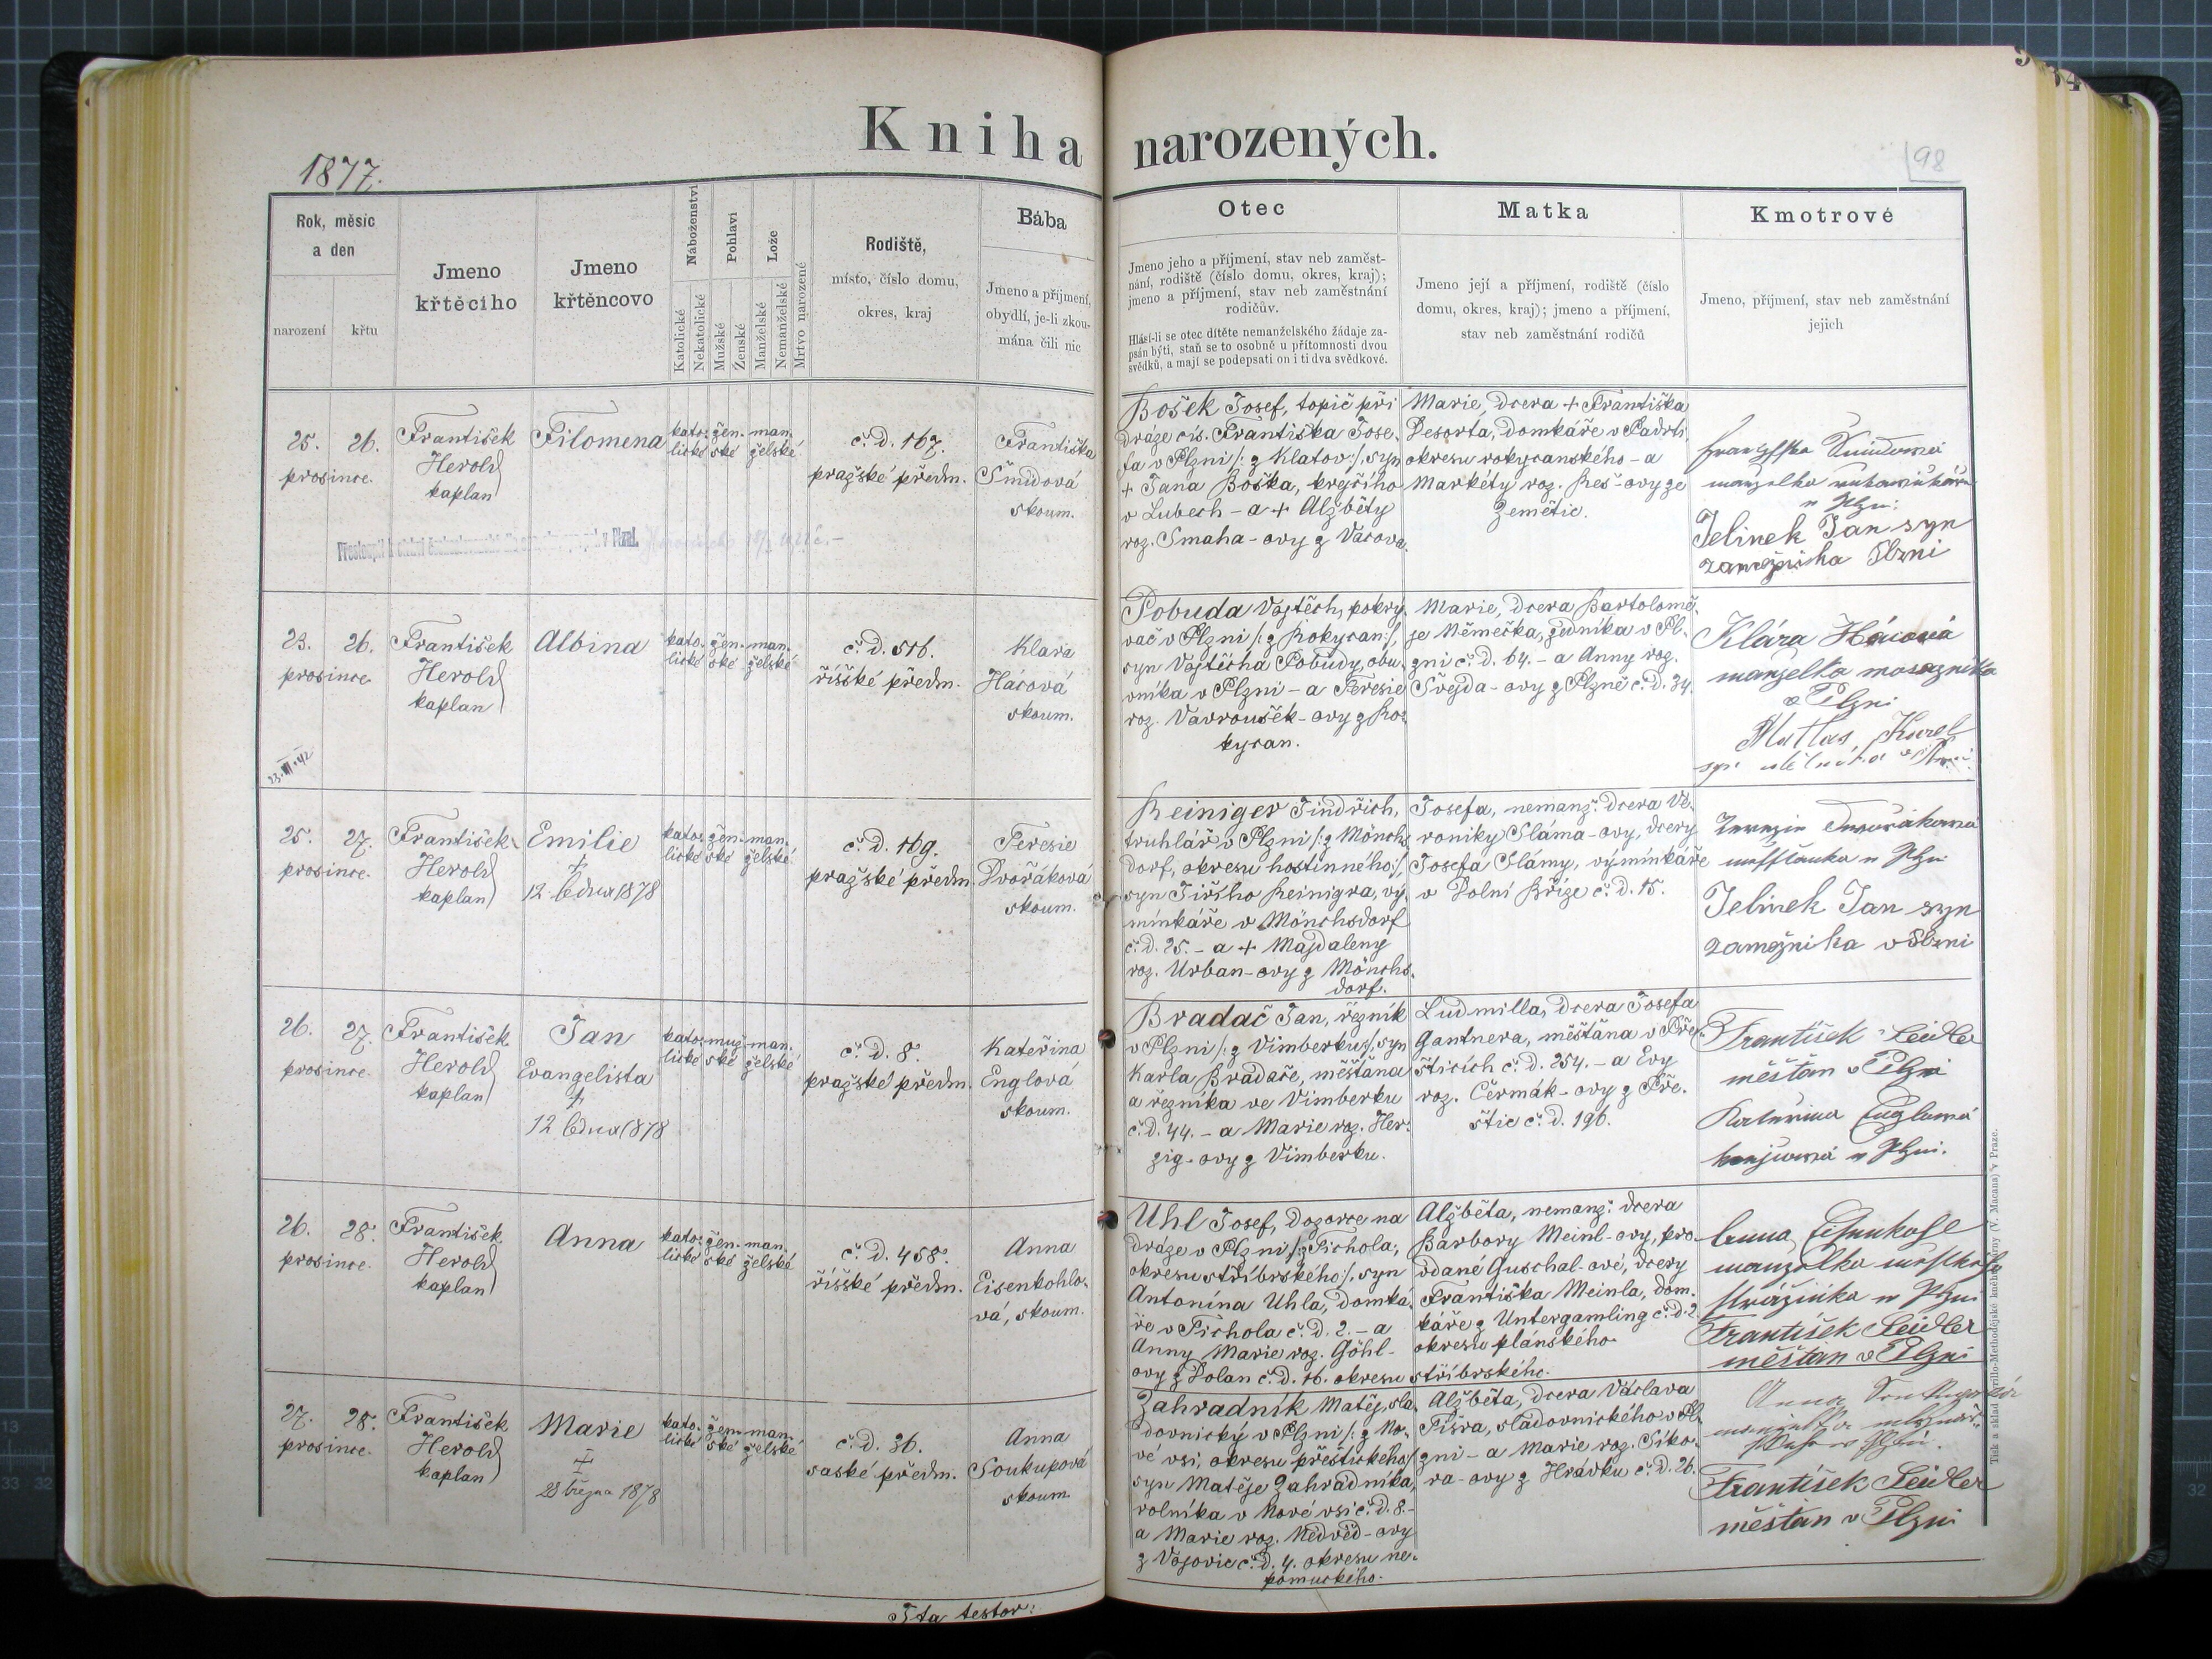 Kniha narozených.
1877.
98
Rok, měsíc
a den
narození
křtu
Jmeno
křtěcího
Jmeno
křtěncovo
Náboženství
Katolické
Nekatolické
Pohlaví
Mužské
Ženské
Lože
Manželské
Nemanželské
Mrtvo narozené
Rodiště,
místo, číslo domu,
okres, kraj
Bába
Jmeno a příjmení,
obydlí, je-li zkou-
mána čili nic
Otec
Jmeno jeho a příjmení, stav neb zaměst-
nání, rodiště (číslo domu, okres, kraj);
jmeno a příjmení, stav neb zaměstnání
rodičův.
Hlásí-li se otec dítěte nemanželského žádaje za-
psán býti, staň se to osobně u přítomnosti dvou
svědků, a mají se podepsati on i ti dva svědkové.
Matka
Jmeno její a příjmení, rodiště (číslo
domu, okres, kraj); jmeno a příjmení,
stav neb zaměstnání rodičů
Kmotrové
Jmeno, příjmení, stav neb zaměstnání
jejich
25. 26.
prosince.
František
Herold
kaplan
Filomena
kato-
lické
žen-
ské
man-
želské
č. d. 167.
pražské předm.
Františka
Šmídová
skoum.
Bošek Josef, topič při
dráze cís. Františka Jose-
fa v Plzni /: z Klatov :/, syn
+ Jana Boška, krejčího
v Lubech - a + Alžběty
roz. Smaha-ovy z Vacova.
Marie, dcera + Františka
Desorta, domkáře v Padrti
okresu rokycanského - a
Markéty roz. Reš-ovy ze
Zemětic.
manzelka
w Plzni
Jelinek Jan syn
zamožnika Plzni
23. 26.
prosince.
František
Herold
kaplan
Albina
kato-
lické
žen-
ské
man-
želské
č. d. 516.
říšské předm.
Klara
Hácová
skoum.
23.VI.42
Pobuda Vojtěch, pokrý-
vač v Plzni /: z Rokycan :/,
syn Vojtěcha Pobudy, obu-
vníka v Plzni - a Teresie
roz. Vavroušek-ovy z Ro-
kycan.
Marie, dcera Bartolomě-
je Němečka, zedníka v Pl-
zni č. d. 64. - a Anny roz.
Švejda-ovy z Plzně č. d. 34.
Klára Hácová
manželka mosazníka
v Plzni
Matlas Karel
25. 27.
prosince.
František
Herold
kaplan
Emilie
+
12 ledna 1878
kato-
lické
žen-
ské
man-
želské
č. d. 169.
pražské předm.
Teresie
Dvořáková
skoum.
Reiniger Jindřich,
truhlář v Plzni /: z Mönchs-
dorf, okresu hostinného :/,
syn Jiřího Reinigra, vý-
minkáře v Mönchsdorf
č. d. 25. - a + Majdaleny
roz. Urban-ovy z Mönchs-
dorf.
Josefa, nemanž. dcera Ve-
roniky Sláma-ovy, dcery
Josefa Slámy, výminkáře
v Dolní Bříze č. d. 15.
Terezie Dworžakowá
w Plzni
Jelinek Jan syn
zamožnika v Plzni
26. 27.
prosince.
František
Herold
kaplan
Jan
Evangelista
+
12 ledna 1878
kato-
lické
muž-
ské
man-
želské
č. d. 8.
pražské předm.
Kateřina
Englová
skoum.
Bradač Jan, řezník
v Plzni /: z Vimberku :/, syn
Karla Bradače, měšťana
a řezníka ve Vimberku
č. d. 44. - a Marie roz. Her-
zig-ovy z Vimberku.
Ludmilla, dcera Josefa
Gantnera, měšťana v Pře-
šticích č. d. 254. - a Evy
roz. Čermák-ovy z Pře-
štic č. d. 196.
František Seidler
měšťan v Plzni
Kateřina Englowá
w Plzni.
26. 28.
prosince.
František
Herold
kaplan
Anna
kato-
lické
žen-
ské
man-
želské
č. d. 458.
říšské předm.
Anna
Eisenkohlo-
vá, skoum.
Uhl Josef, dozorce na
dráze v Plzni /: z Tichola,
okresu stříbrského :/, syn
Antonína Uhla, domká-
ře v Tichola č. d. 2. - a
Anny Marie roz. Göhl-
ovy z Dolan č. d. 16. okresu stříbrského.
Alžběta, nemanž. dcera
Barbory Meinl-ovy, pro-
vdané Guschal-ové, dcery
Františka Meinla, dom-
káře z Untergamling č. d. 2
okresu plánského.
Anna
manzelka
w Plzni
František Seidler
měšťan v Plzni
27. 28.
prosince.
František
Herold
kaplan
Marie
+
23 března 1878
kato-
lické
žen-
ské
man-
želské
č. d. 36.
saské předm.
Anna
Soukupová
skoum.
Zahradník Matěj, sla-
dovnický v Plzni /: z No-
vé vsi, okresu přeštického :/
syn Matěje Zahradníka,
rolníka v Nové vsi č. d. 8. -
a Marie roz. Nedvěd-ovy
z Vojovic č. d. 4. okresu ne-
pomuckého.
Alžběta, dcera Václava
Tišra, sladovnického v Pl-
zni - a Marie roz. Siko-
ra-ovy z Hrádku č. d. 26.
Anna
František Seidler
měšťan v Plzni
Ita testor:
Tisk a sklad Cyrillo-Methodějské knihtiskárny (V. Macana) v Praze.